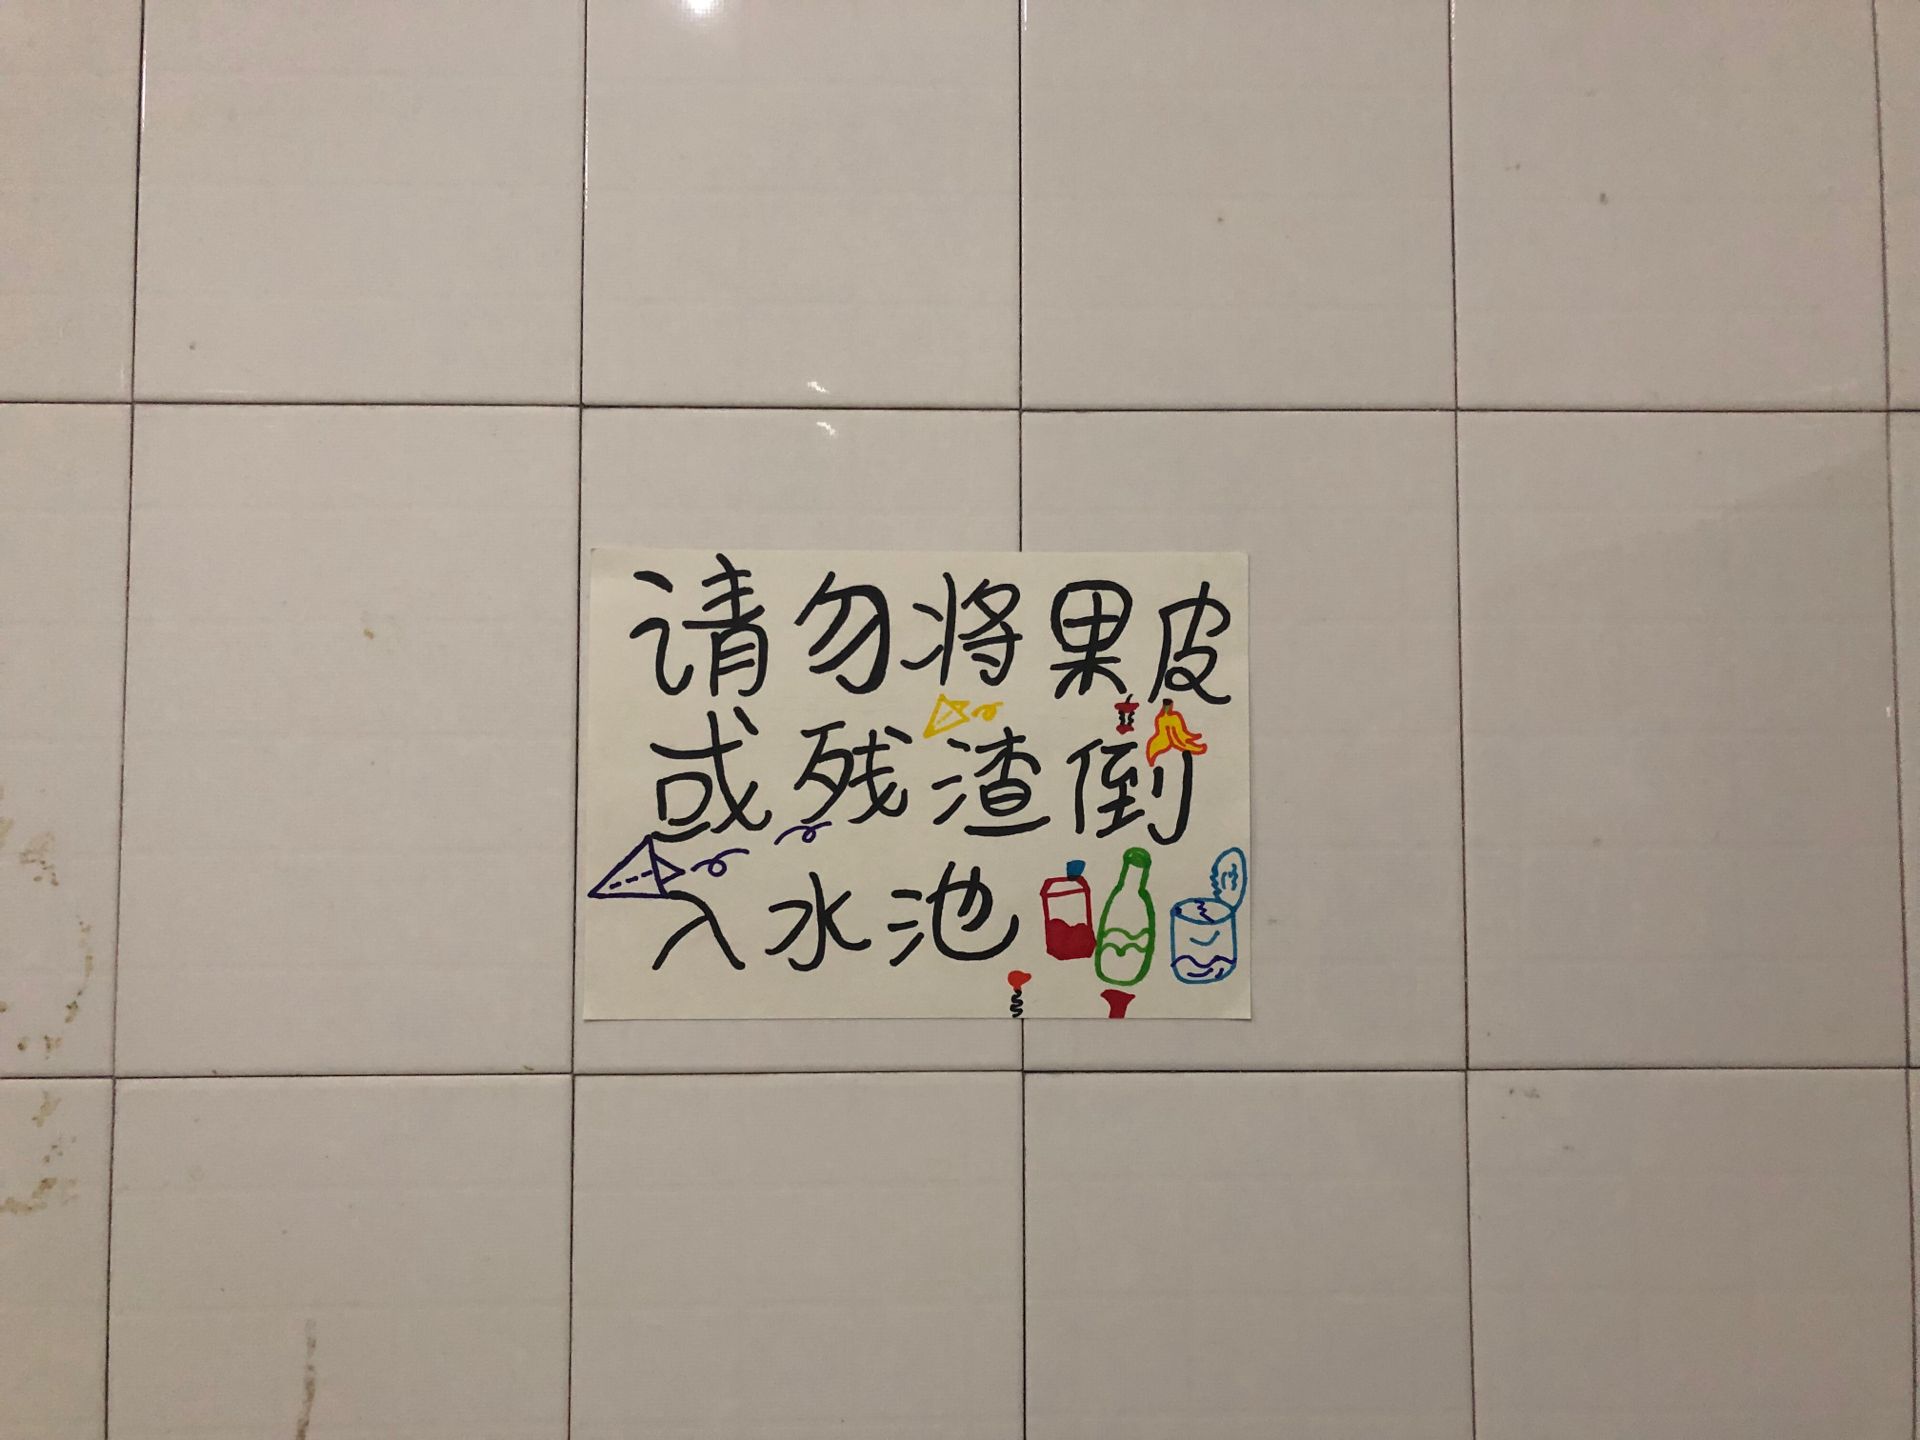 请勿将果皮
或残渣倒
入水池